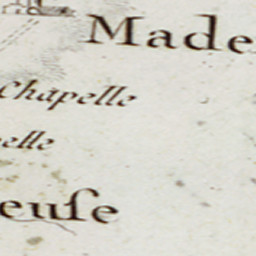 Made
Chapelle
elle
euſe